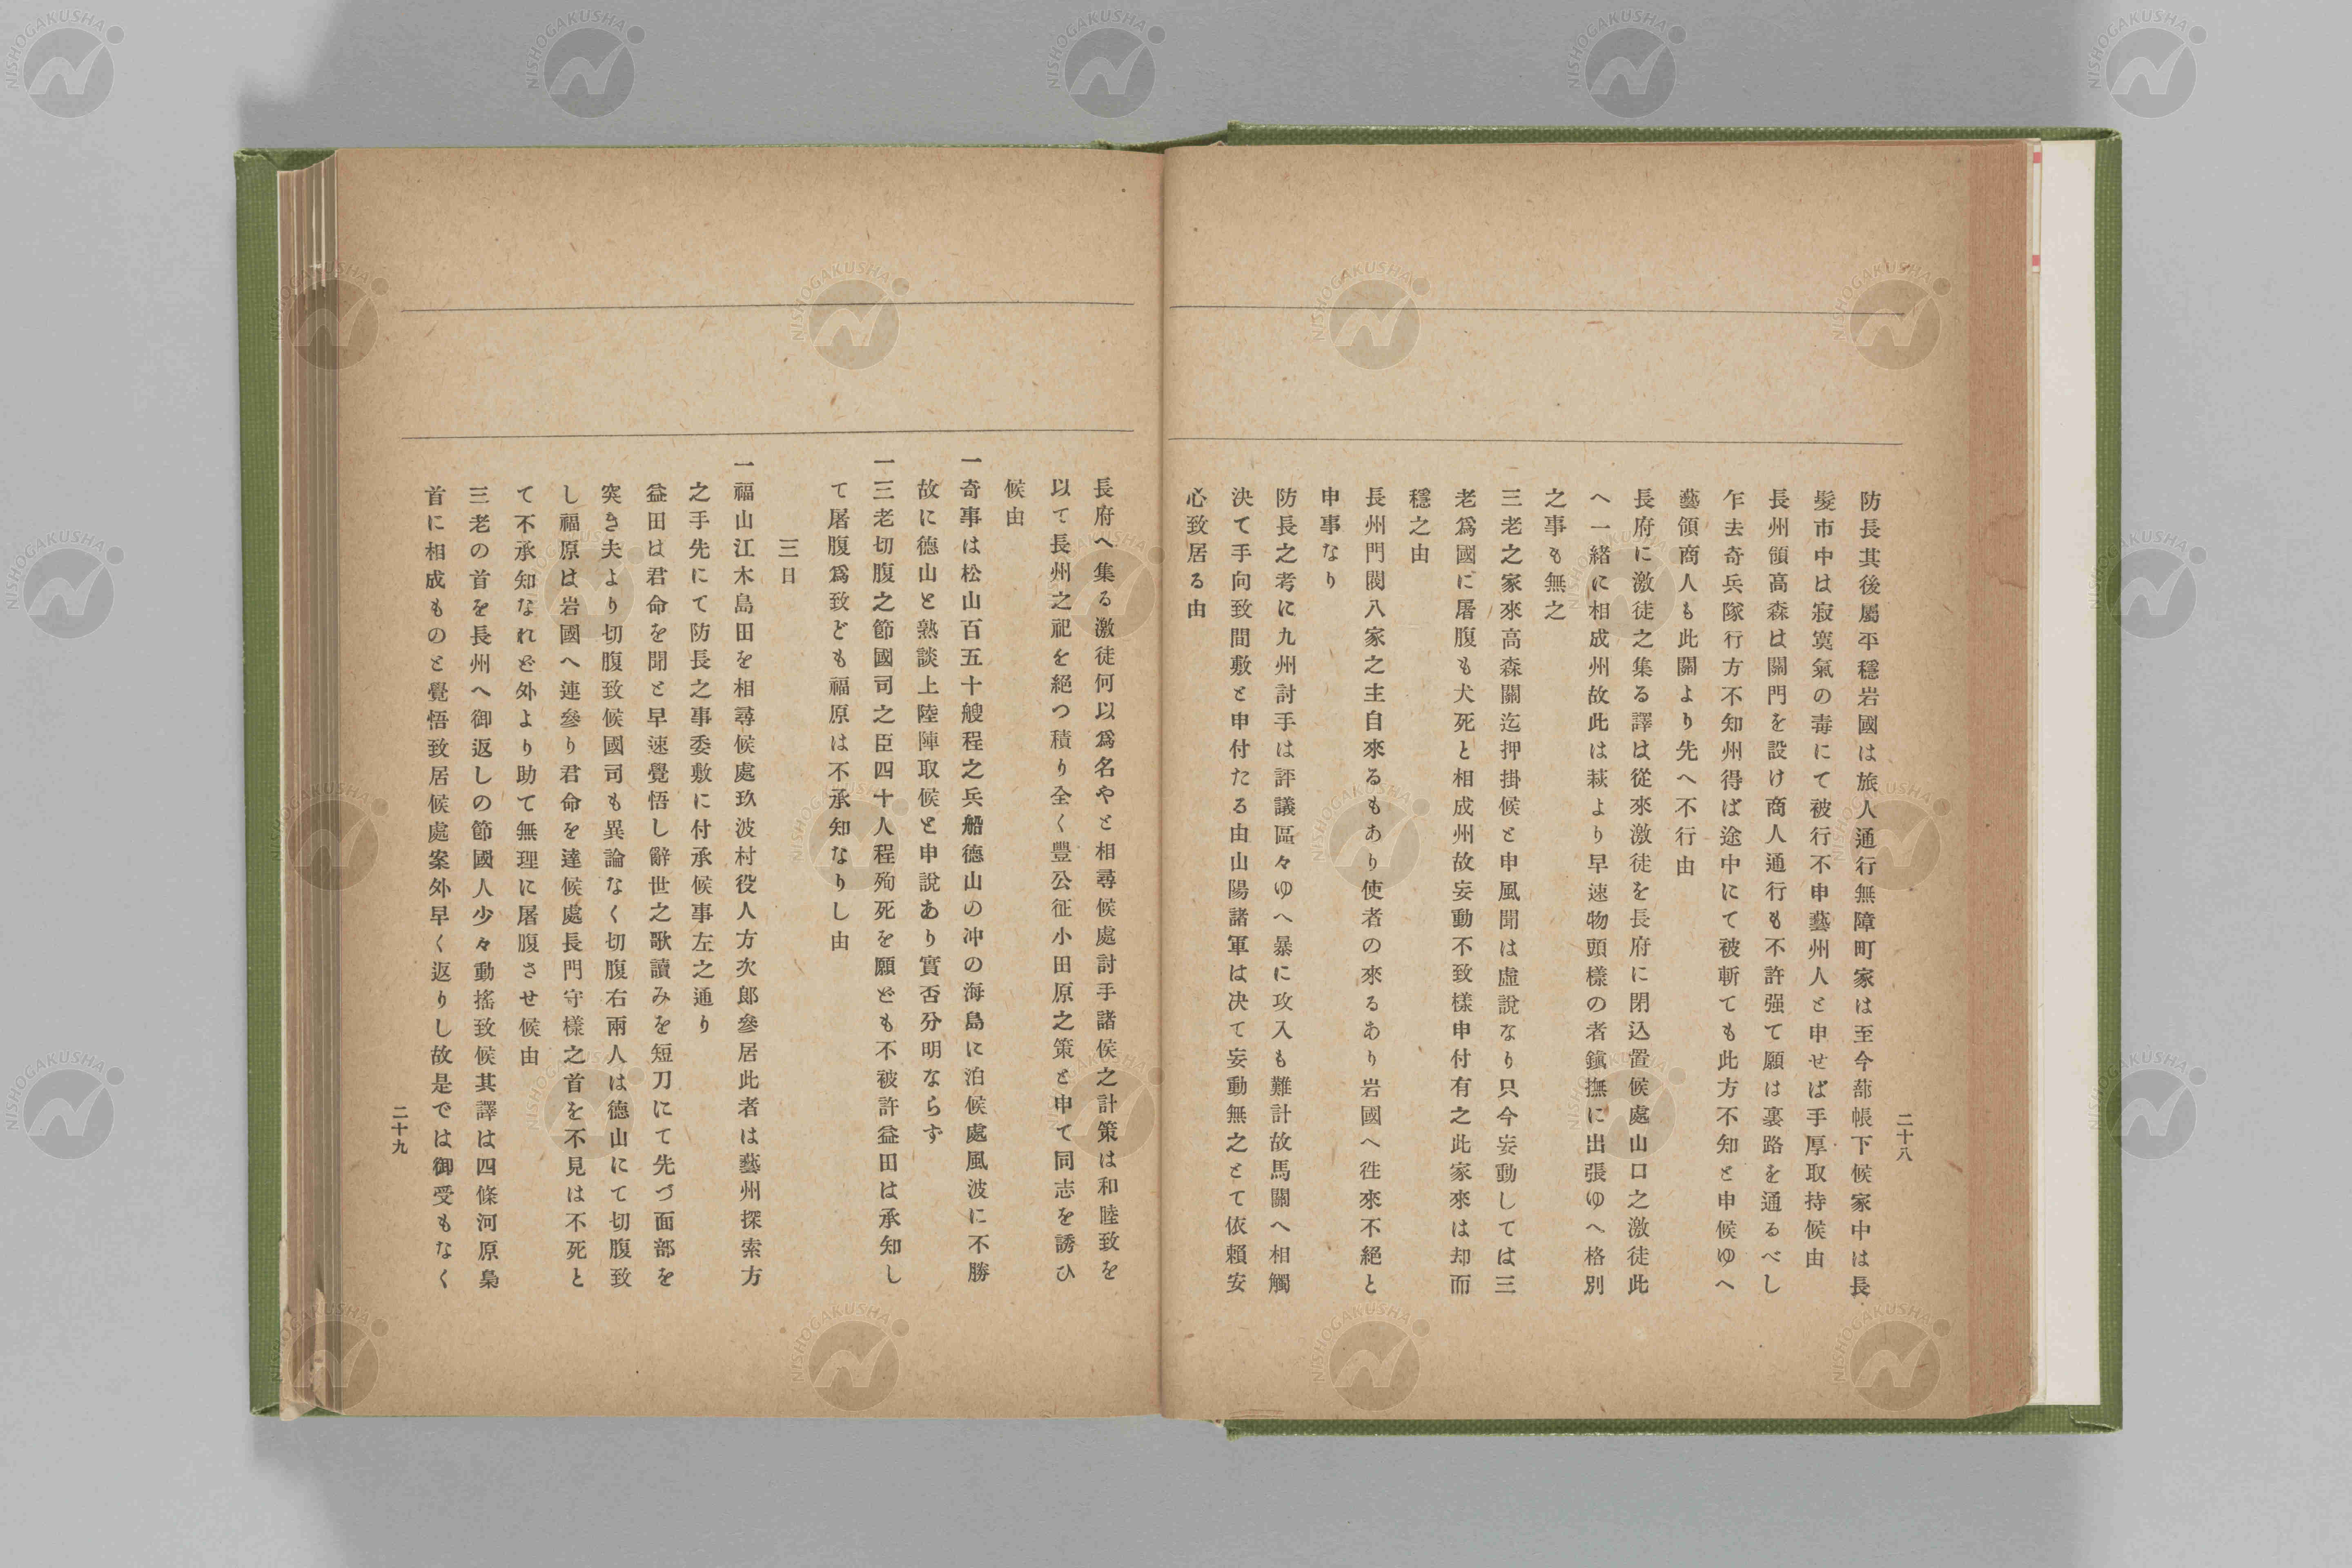 防長其後屬平穩岩國は旅人通行無障町家は至今蔀帳下候家中は長
髮市中は寂寞氣の毒にて被行不申藝州人と申せば手厚取持候由
長州領高森は關門を設け商人通行も不許强て願は裏路を通るべし
乍去奇兵隊行方不知州得ば途中にて被斬ても此方不知と申候ゆへ
藝領商人も此關より先へ不行由
長府に激徒之集る譯は從來激徒を長府に閉込置候處山口之激徒此
へ一緒に相成州故此は萩より早速物頭樣の者鎭撫に出張ゆへ格別
之事も無之
三老之家來高森關迄押掛候と申風聞は虛說なり只今妄動しては三
老爲國に屠腹も犬死と相成州故妄動不致樣申付有之此家來は却而
穩之由
長州門閥八家之主自來るもあり使者の來るあり岩國へ徃來不絕と
申事なり
防長之考に九州討手は評議區々ゆへ暴に攻入も難計故馬關へ相觸
決て手向致間敷と申付たる由山陽諸軍は决て妄動無之とて依賴安
心致居る由
二十八
長府へ集る激徒何以爲名やと相尋候處討手諸侯之計策は和睦致を
以て長州之祀を絕つ積り全く豐公征小田原之策と申て同志を誘ひ
候由
一奇事は松山百五十艘程之兵船德山の沖の海島に泊候處風波に不勝
故に德山と熟談上陸陣取候と申說あり實否分明ならず
一三老切腹之節國司之臣四十人程殉死を願ども不被許益田は承知し
て屠腹爲致ども福原は不承知なりし由
三日
一福山江木島田を相尋候處玖波村役人方次郞參居此者は藝州探索方
之手先にて防長之事委敷に付承候事左之通り
益田は君命を聞と早速覺悟し辭世之歌讀みを短刀にて先づ面部を
突き夫より切腹致候國司も異論なく切腹右兩人は德山にて切腹致
し福原は岩國へ連參り君命を達候處長門守樣之首を不見は不死と
て不承知なれど外より助て無理に屠腹させ候由
三老の首を長州へ御返しの節國人少々動搖致候其譯は四條河原梟
首に相成ものと覺悟致居候處案外早く返りし故是では御受もなく
二十九
NISHOGAKUSHA